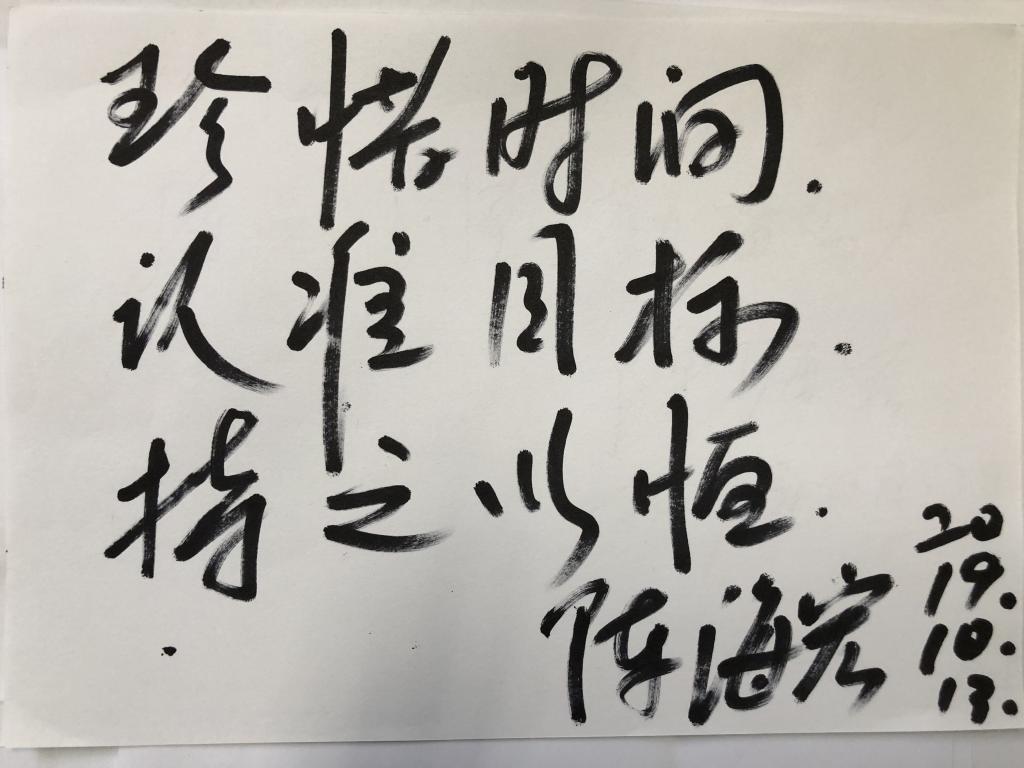 珍惜时间.
认准目标.
持之以恒.
陈海宏
20
19.
10.
13.